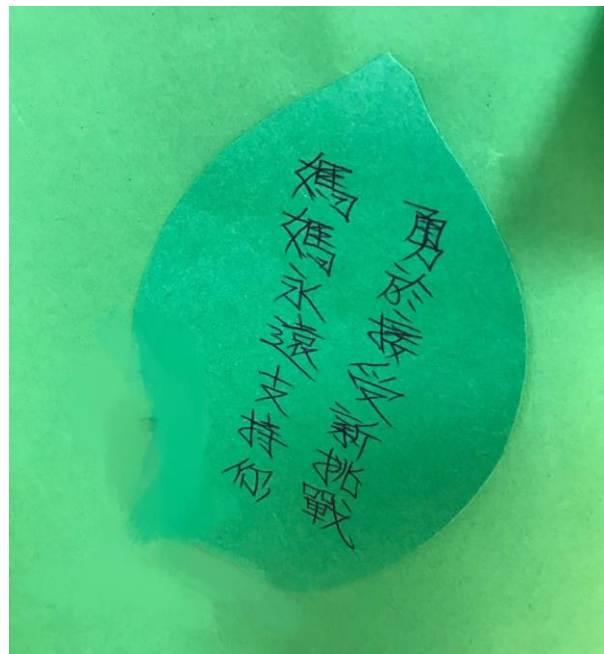 勇於接受新挑戰
媽媽永遠支持你